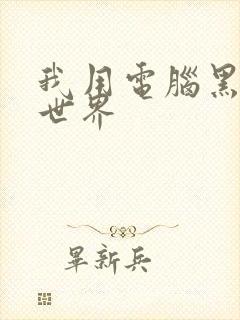 我用電腦黑
世界
畢新兵